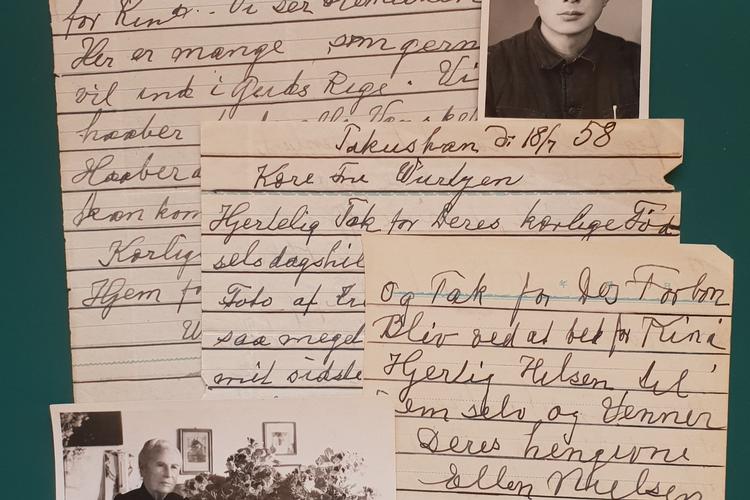 for Kina. Vi ser
Her er mange som gern
vil ind i Guds Rige. Vi
haaber
Haaber
kan kom
Kærlig
Hjem
Takushan D. 18/7 58
Kære Fru
Hjertelig Tak for Deres kærlige Fød
selsdagshil
Foto af
saa meget
mit sidste
og Tak for Des Forbøn
Bliv ved at bed for Kina
Hjertlig Hilsen til
em selv og Venner
Deres hengivne
Ellen Nielsen